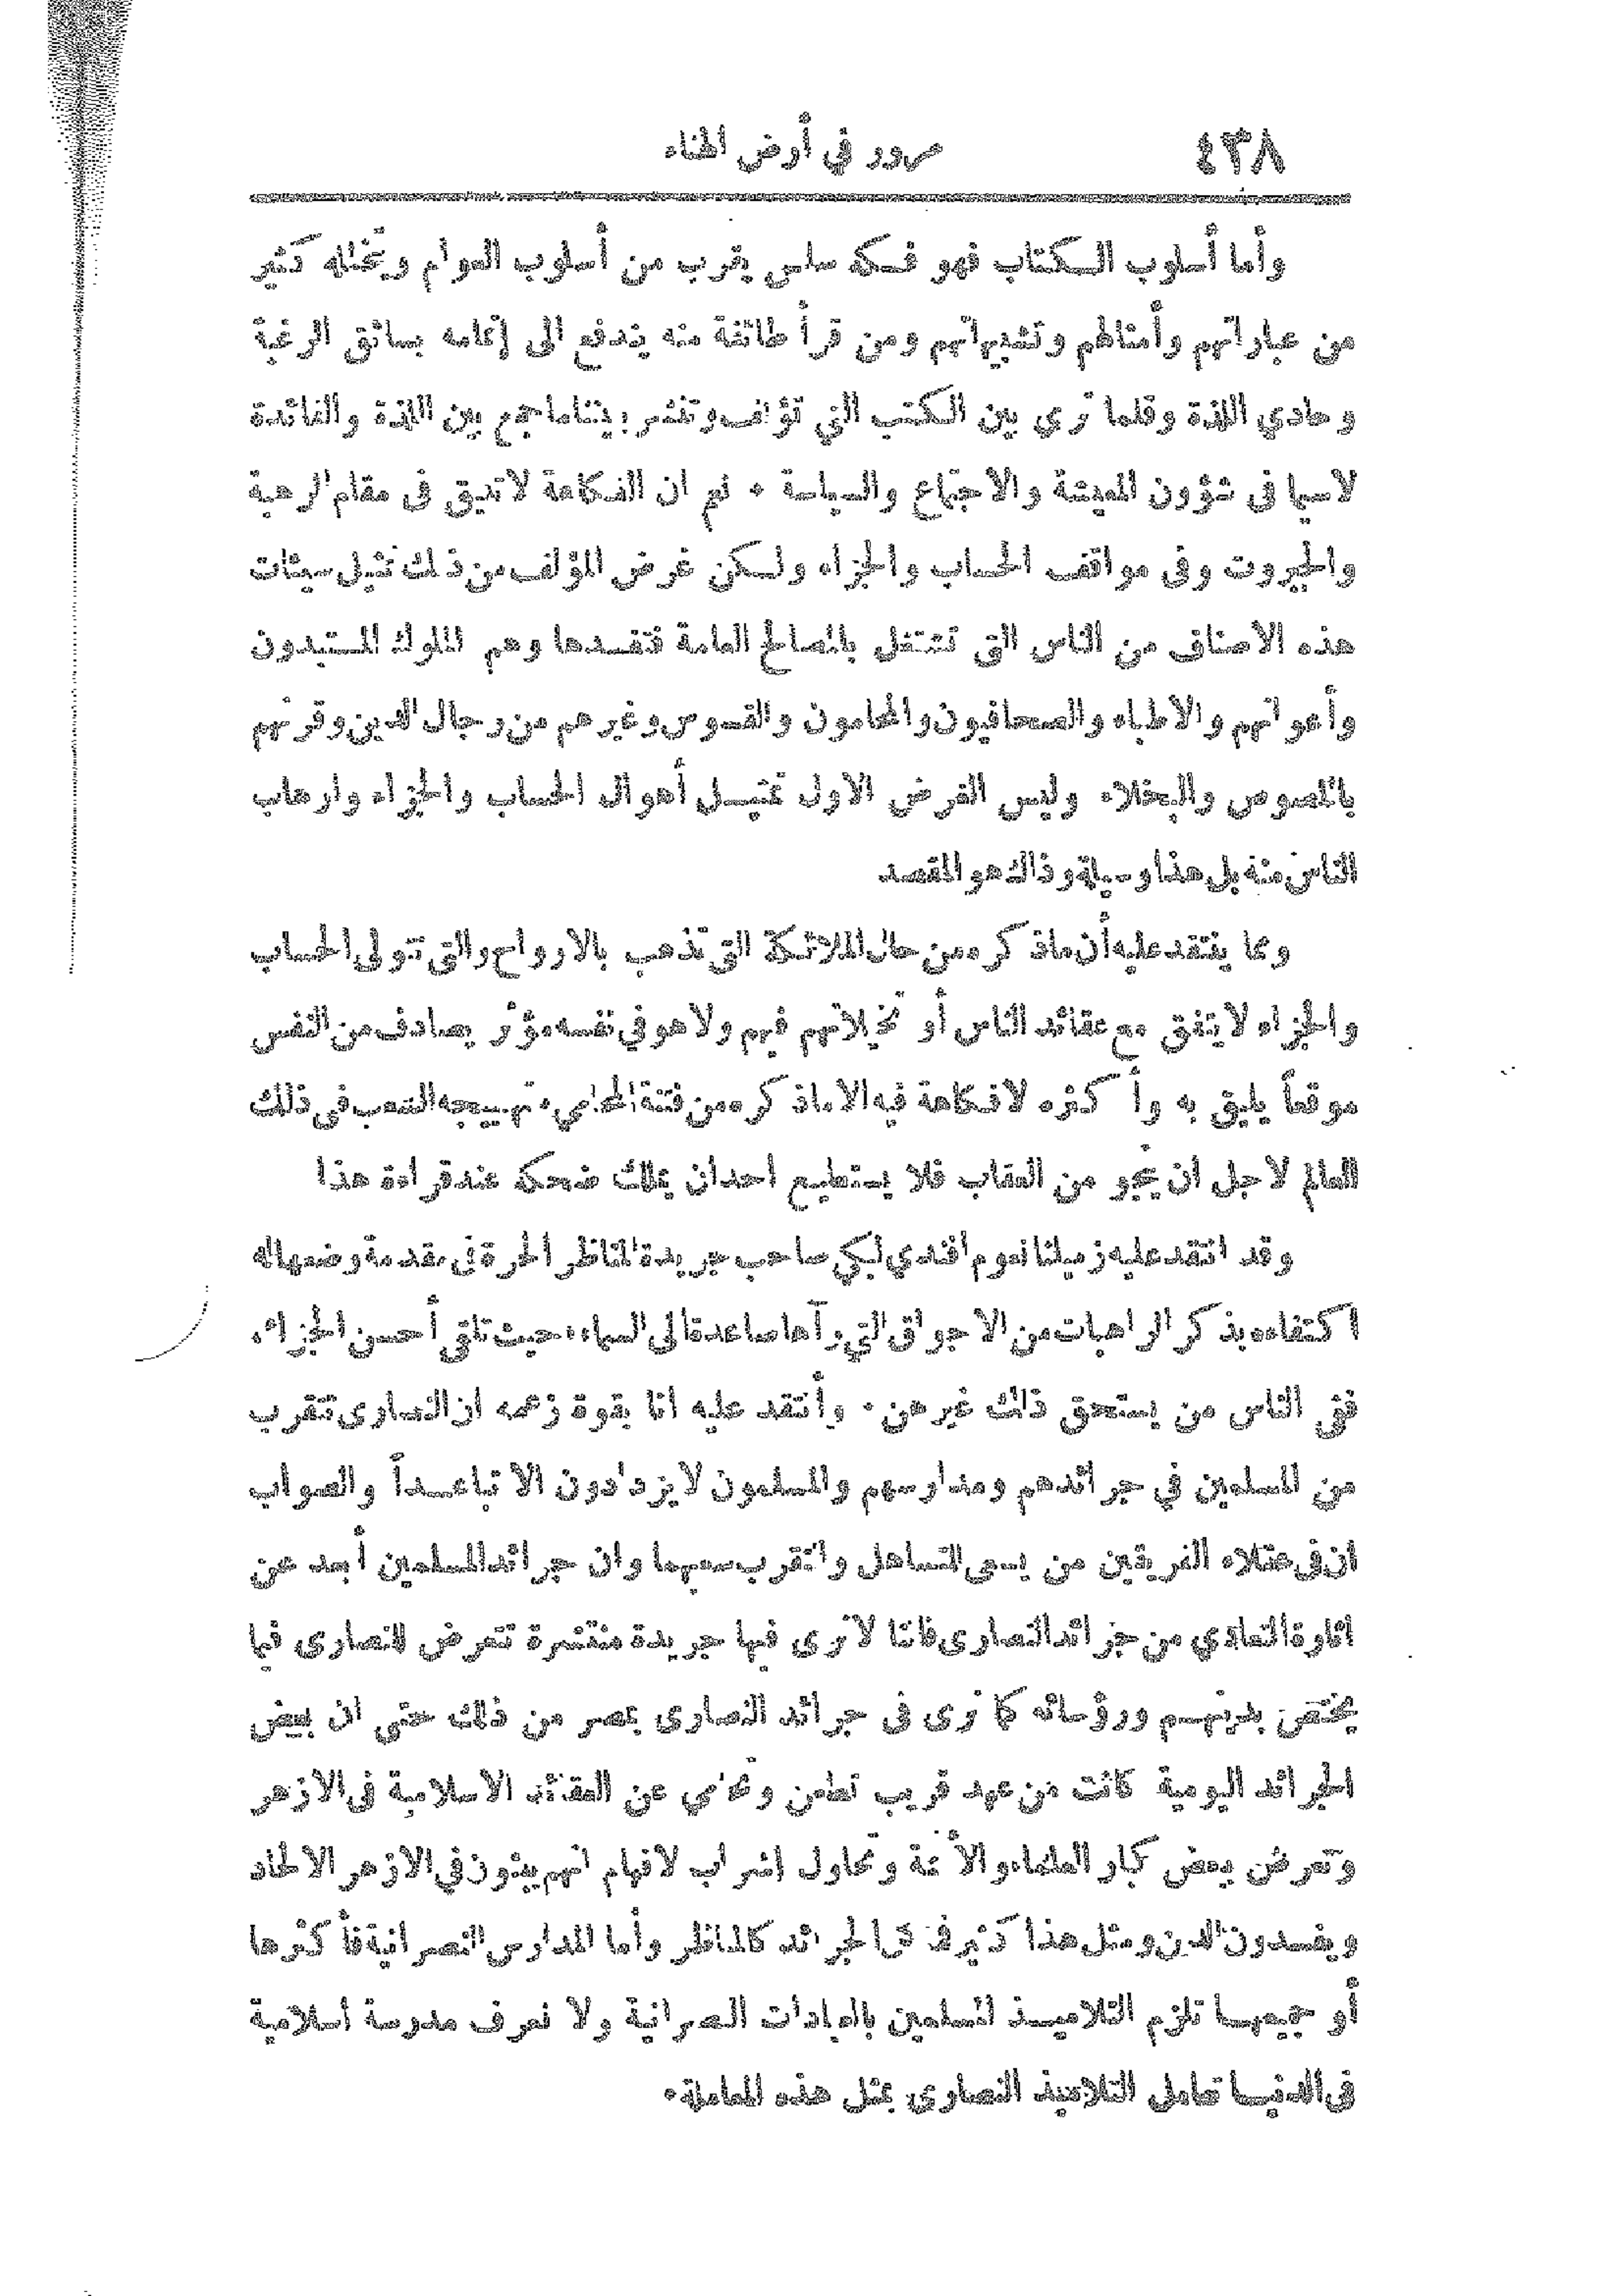 ٤٣٨ صور في أرض الهناء
وأما أسلوب الكتاب فهو فكه سلس يقرب من أسلوب العوام ويتخلله كثير
من عباراتهم وأمثالهم وتشبيهاتهم ومن قرأ طائفة منه يندفع الى إتمامه بسائق الرغبة
وحادي اللذة وقلما ترى بين الكتب التي تؤلف وتنشر بيننا ما جمع بين اللذة والفائدة
لاسيما في شؤون المعيشة والاجتماع والسياسة . نعم ان الفكاهة لا تليق في مقام الرهبة
والجبروت وفي مواقف الحساب والجزاء ولكن غرض المؤلف من ذلك تمثيل سيئات
هذه الاصناف من الناس التي تشتغل بالمصالح العامة فتفسدها وهم الملوك المستبدون
وأعوانهم والاطباء والصحافيون والمحامون والقسوس وغيرهم من رجال الدين وقرنهم
باللصوص والبخلاء وليس الغرض الاول تمثيل أهوال الحساب والجزاء وارهاب
الناس منه بل هذا وسيلة وذاك هو المقصد
ومما ينتقد عليه أن ما ذكره من حال الملائكة التي تذهب بالارواح والتي تتولى الحساب
والجزاء لا يتفق مع عقائد الناس أو تخيلاتهم فيهم ولا هو في نفسه مؤثر يصادف من النفس
موقعاً يليق به وأكثره لا فكاهة فيه الا ما ذكره من فتنة المحامي وتهييجه الشعب في ذلك
العالم لاجل ان ينجو من العقاب فلا يستطيع احد ان يملك ضحكه عند قراءة هذا
وقد انتقد عليه زميلنا نعوم افندي لبكي صاحب جريدة المناظر الحرة في مقدمة وضعها له
اكتفاءه بذكر الراهبات من الاجواق التي رآها صاعدة الى السماء حيث تلقى أحسن الجزاء
ففي الناس من يستحق ذلك غيرهن . وأنتقد عليه انا بقوة زعمه ان النصارى تتقرب
من المسلمين في جرائدهم ومدارسهم والمسلمون لا يزدادون الا تباعداً والصواب
ان في عقلاء الفريقين من يسعى للتساهل والتقرب بينهما وان جرائد المسلمين أبعد عن
اثارة التعادي من جرائد النصارى فاننا لا نرى فيها جريدة منتشرة تتعرض للنصارى فيما
يختص بدينهم ورؤسائه كما نرى في جرائد النصارى بمصر من ذلك حتى ان بعض
الجرائد اليومية كانت من عهد قريب تطعن وتحامي عن العقائد الاسلامية في الازهر
وتعرض ببعض كبار العلماء والأئمة وتحاول إشراب الافهام انهم يبثون في الازهر الالحاد
ويفسدون الدين ومثل هذا كثير في الجرائد كالمناظر وأما المدارس النصرانية فأكثرها
أو جميعها تلزم التلاميذ المسلمين بالعبادات النصرانية ولا نعرف مدرسة اسلامية
في الدنيا تعامل التلاميذ النصارى بمثل هذه المعاملة .